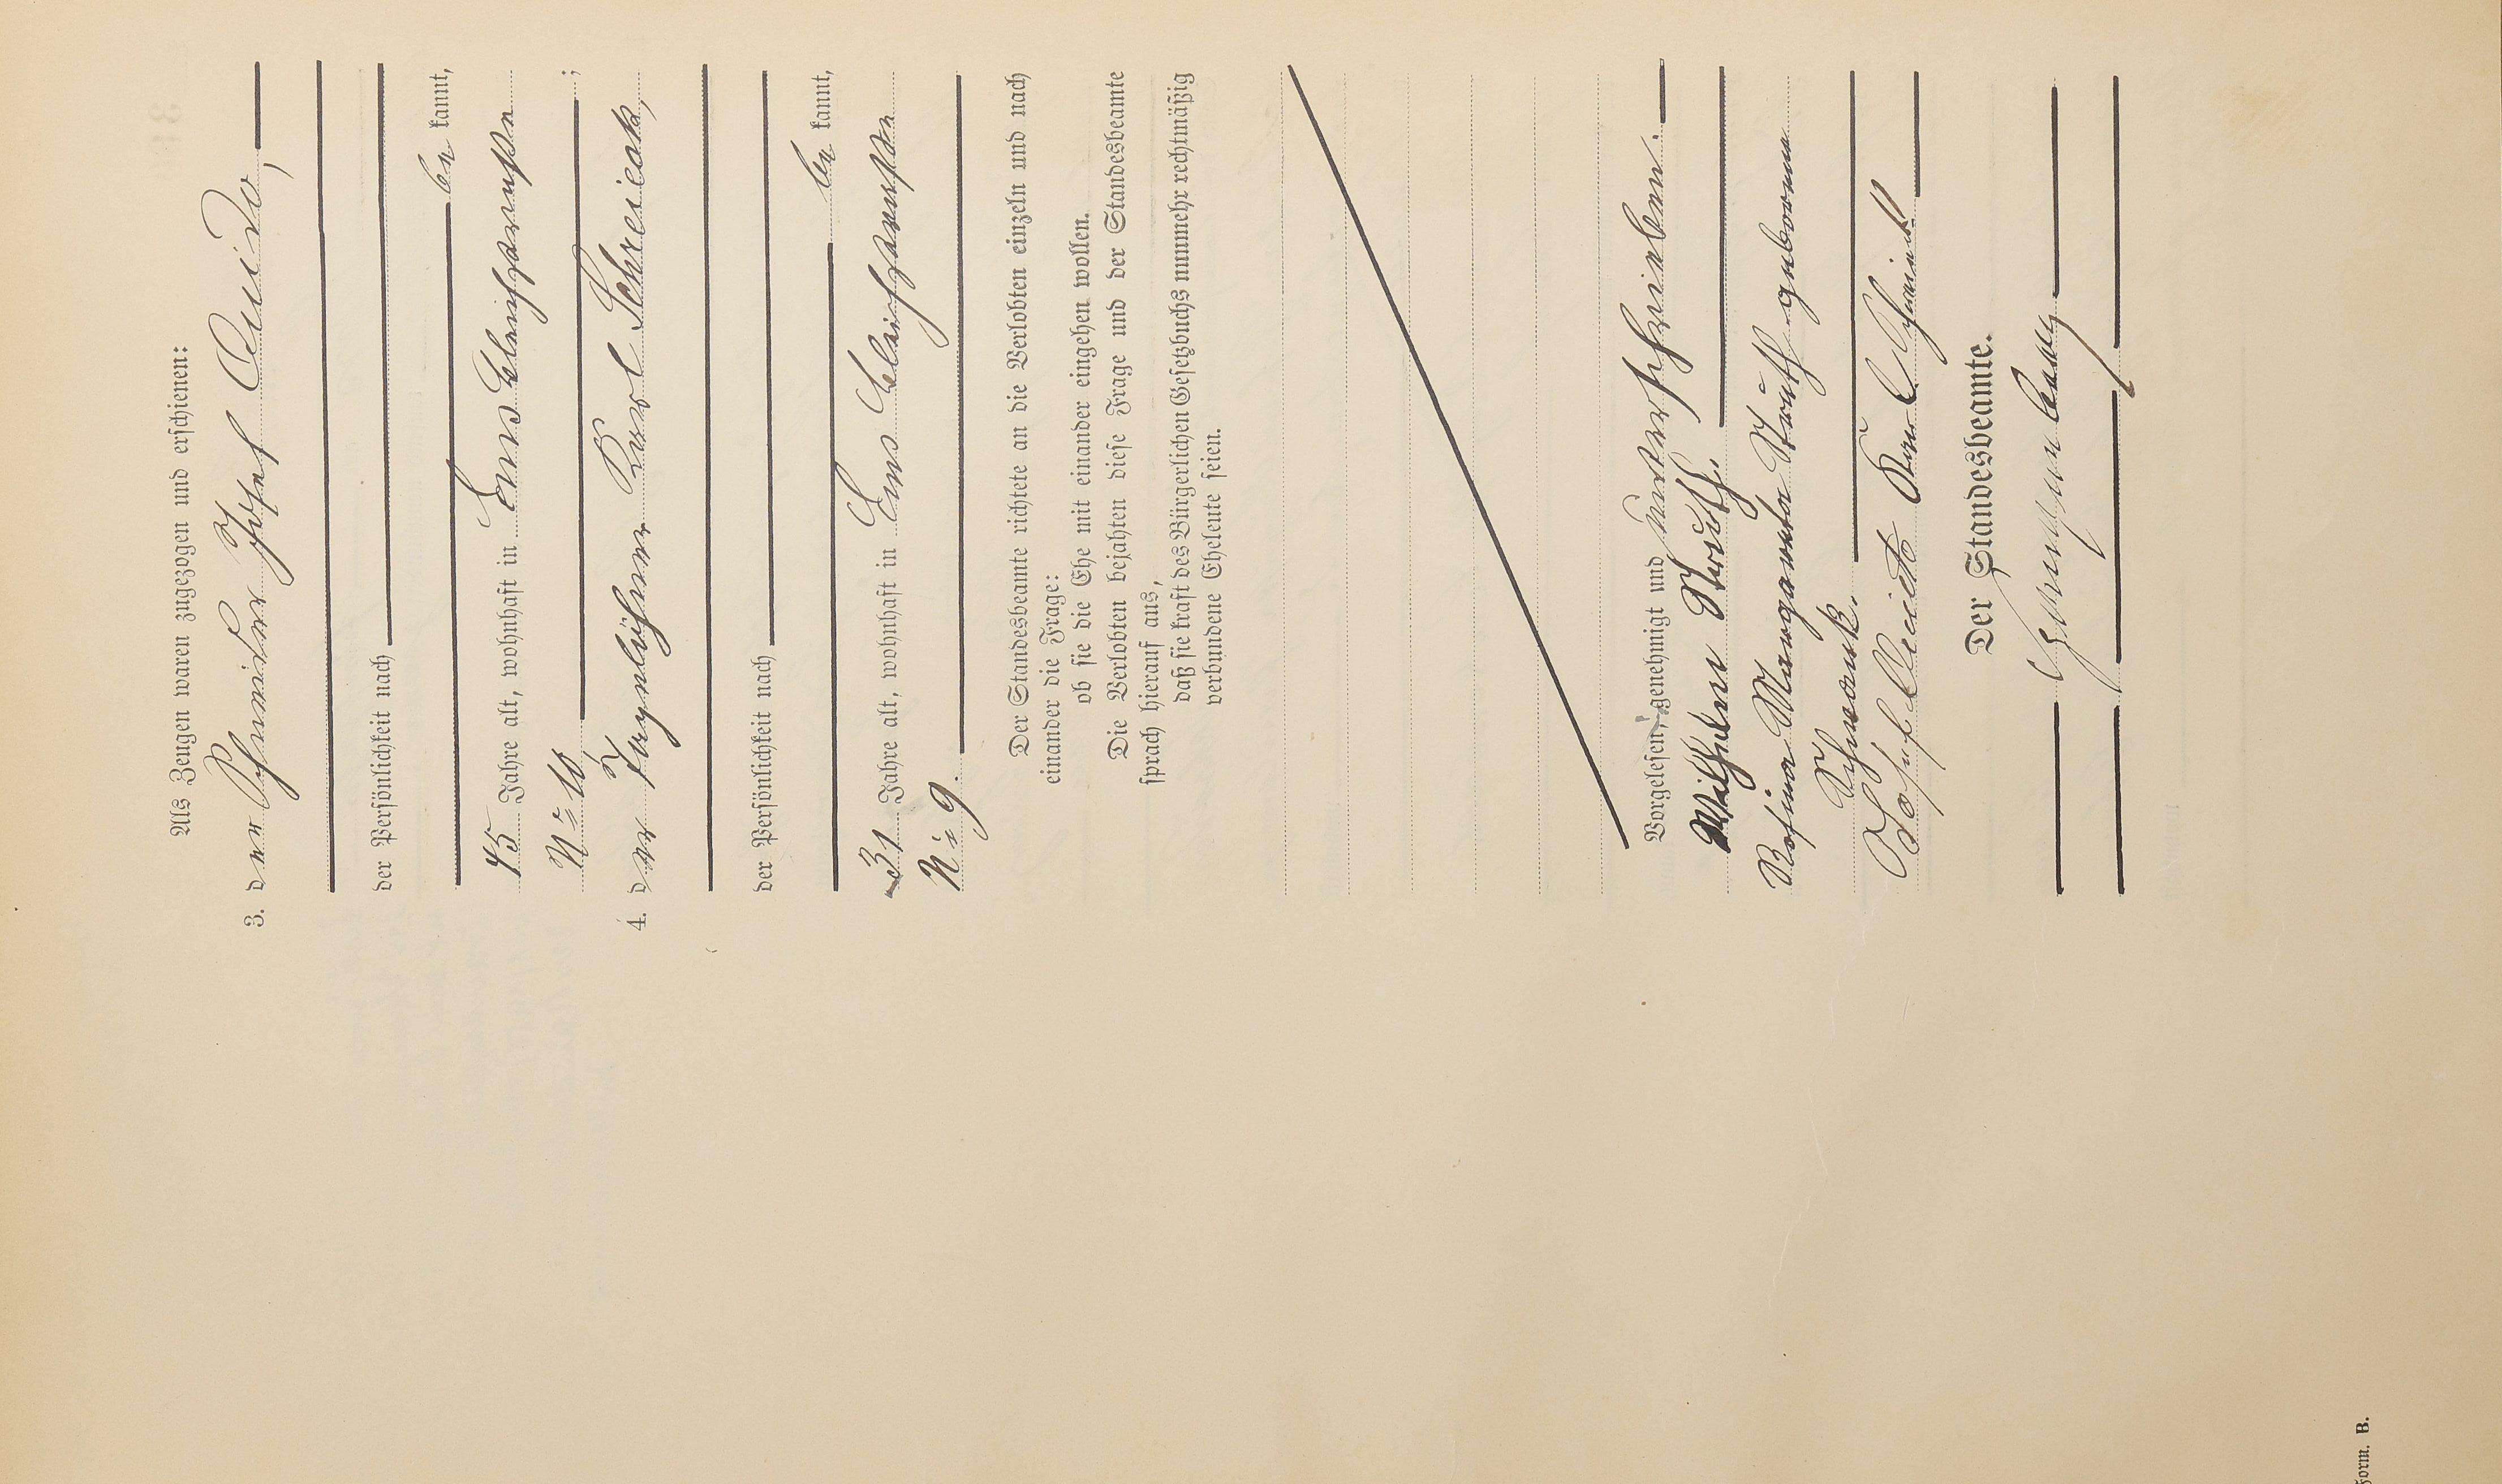 Als Zeugen waren zugezogen und erschienen:
3. der Schneider Josef Quido,
der Persönlichkeit nach
be kannt,
45 Jahre alt, wohnhaft in Ems
No 10 ;
4. der Taglöhner Karl Schreieck,
der Persönlichkeit nach
be kannt,
31 Jahre alt, wohnhaft in Ems
No 9.
Der Standesbeamte richtete an die Verlobten einzeln und nach
einander die Frage:
ob sie die Ehe mit einander eingehen wollen.
Die Verlobten bejahten diese Frage und der Standesbeamte
sprach hierauf aus,
daß sie kraft des Bürgerlichen Gesetzbuchs nunmehr rechtmäßig
verbundene Eheleute seien.
Vorgelesen, genehmigt und unterschrieben.
Wilhelm Struth.
Rosina Margareta Struth geborene
Schwank.
Josef Karl
Der Standesbeamte.
Form. B.